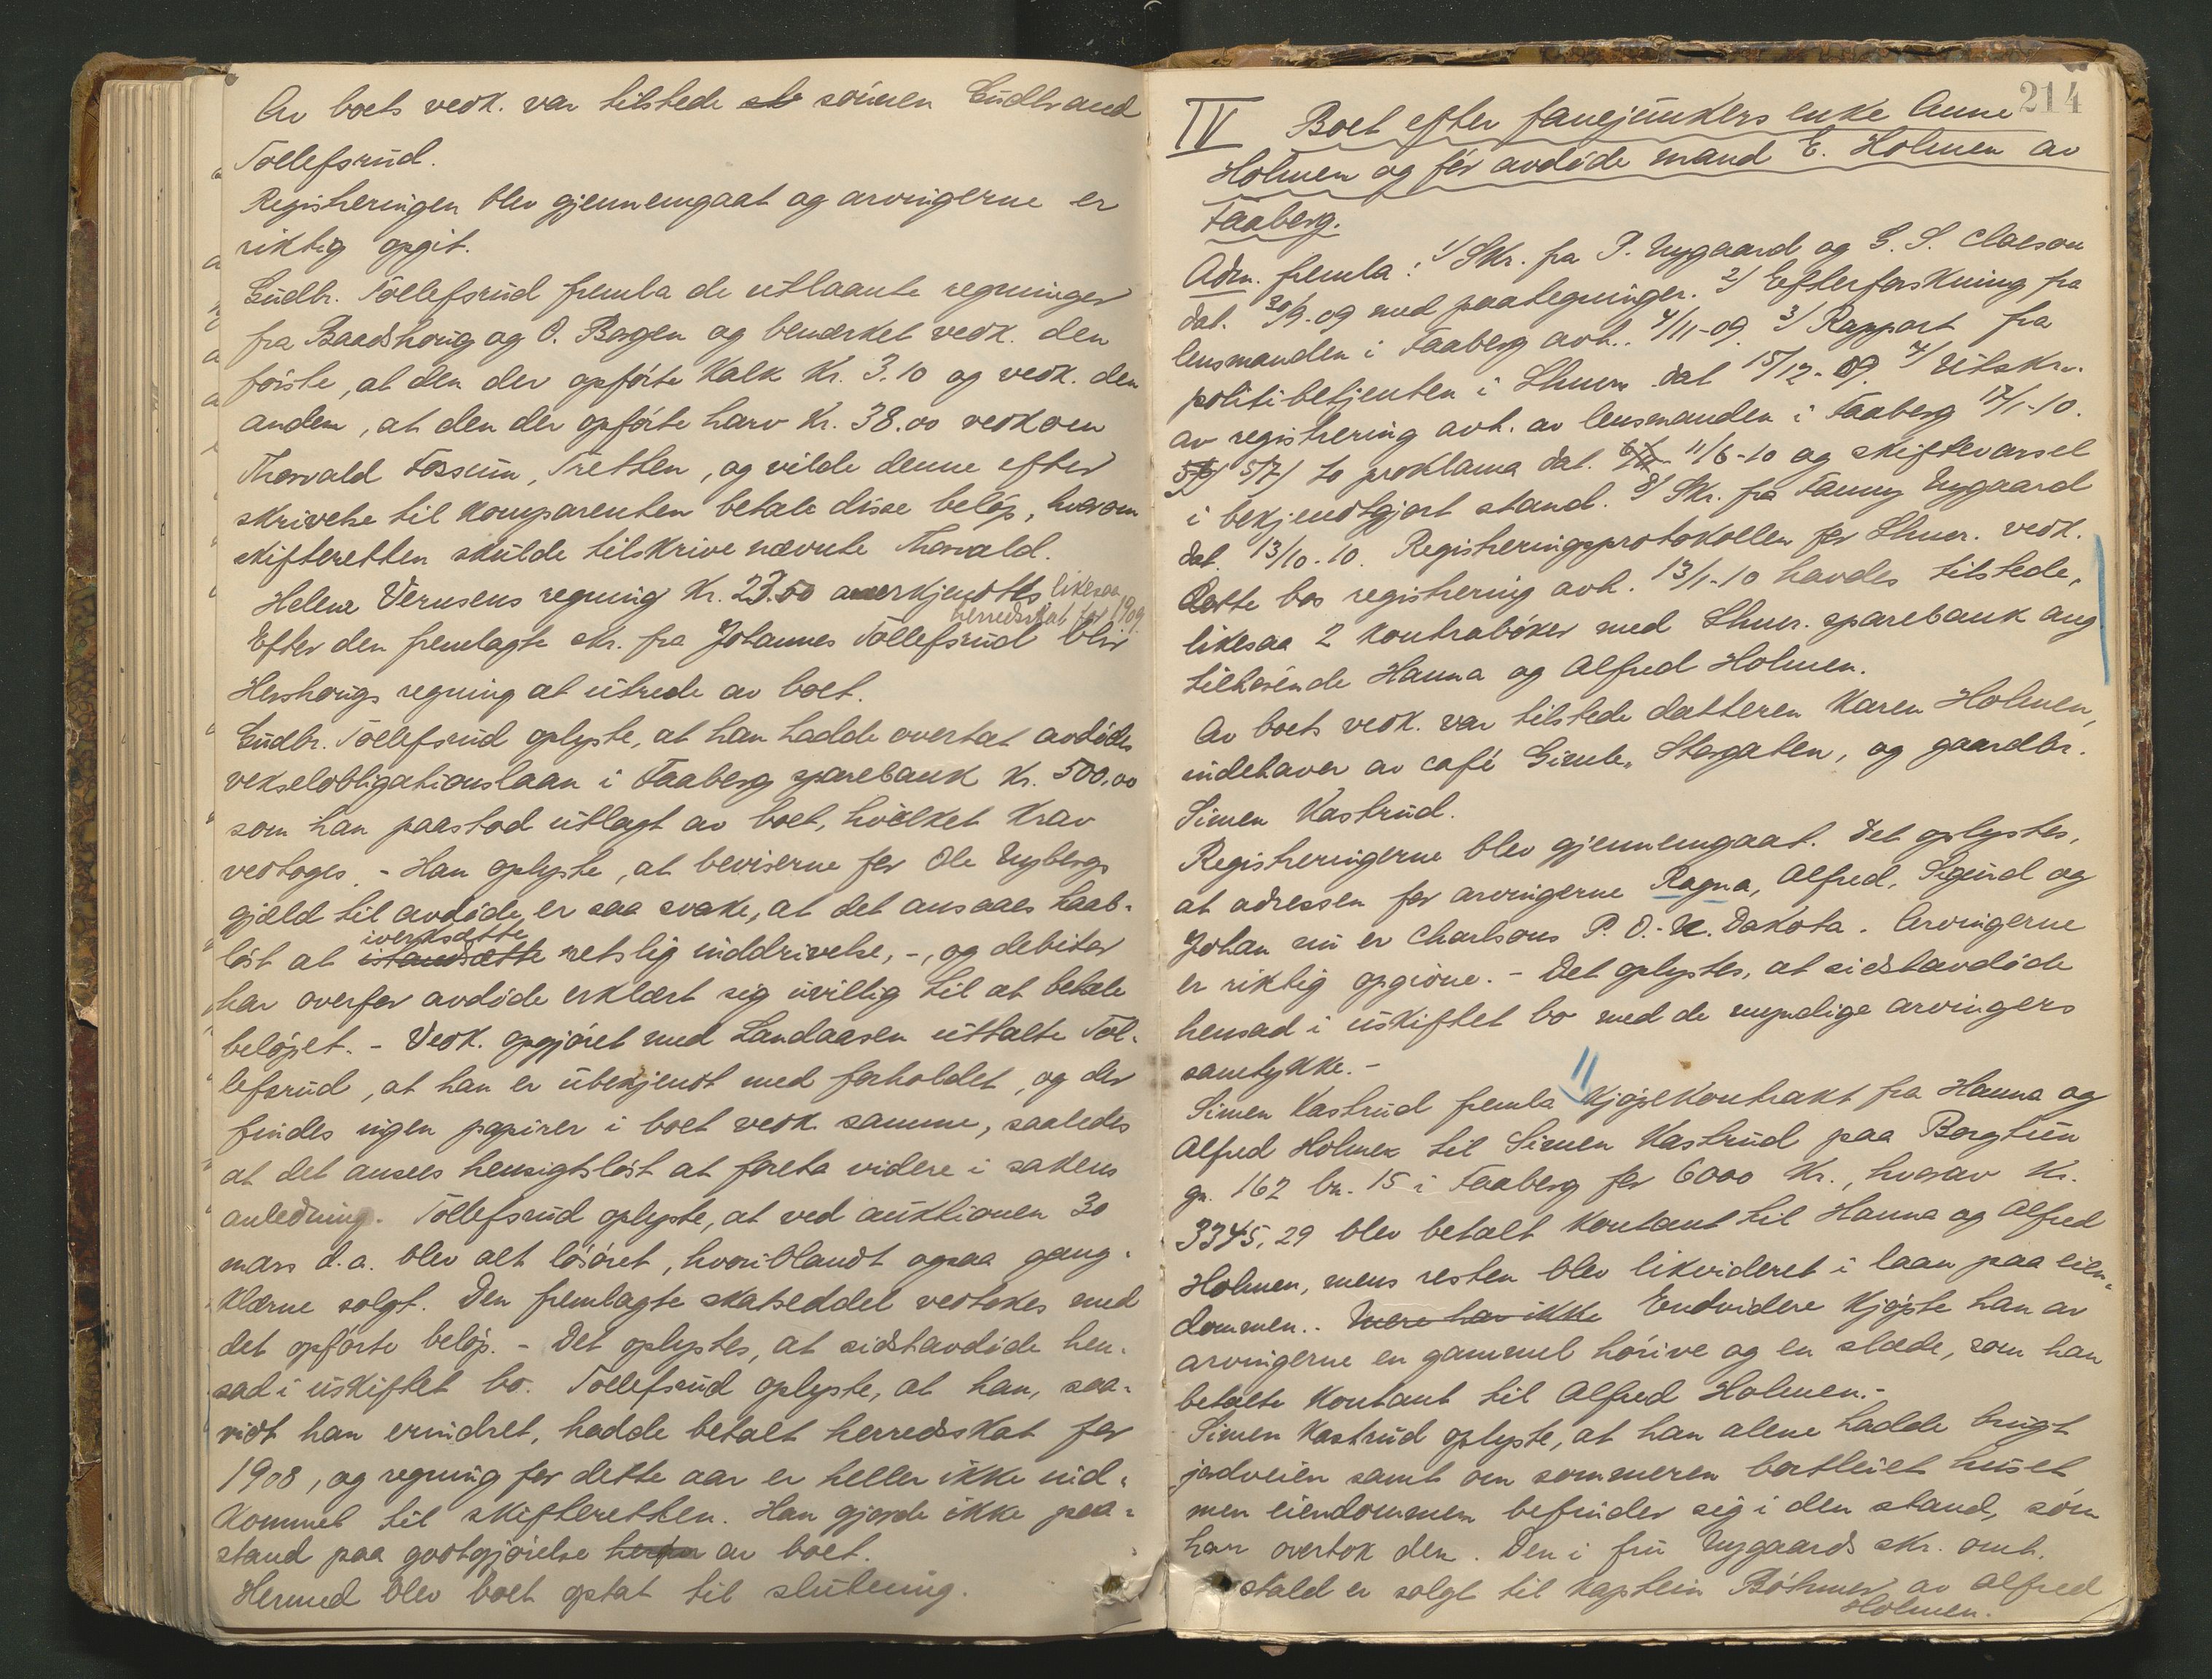 Av boets vedk. var tilstede sönnen Gudbrand
Tollefsrud.
Registreringen blev gjennemgaat og arvingerne er
riktig opgit.
Gudbr. Tollefsrud fremla de utlaante regninger
fra Baadshoug og O. Borgen og bemerket vedk. den
förste, at den der opförte kalk Kr. 3.10 og vedk. den
anden, at den der opförte harv Kr. 38.00 vedkom
Thorvald Fossum, Tretten, og vilde denne efter
skrivelse til komparenten betale disse belöp, hvorom
skifteretten skulde tilskrive nævnte Thorvald.
Helene Verusens regning Kr. 23.50 anerkjendtes likesaa
herredsskat for 1909.
Efter den fremlagte skr. fra Johannes Tollefsrud blir
Hershougs regning at utrede av boet.
Gudbr. Tollefsrud oplyste, at han hadde overtat avdödes
vekselobligationslaan i Faaberg sparebank Kr. 500.00
som han paastod utlagt av boet, hvilket krav
vedtoges. - Han oplyste, at beviserne for Ole Nybergs
gjæld til avdöde er saa svake, at det ansaaes haab-
iverksætte
löst at istandsætte retslig inddrivelse, -, og debitor
har overfor avdöde erklært sig uvillig til at betale
belöpet. - Vedk. opgjöret med Landaasen uttalte Tol-
lefsrud, at han er ubekjendt med forholdet, og der
findes ingen papirer i boet vedk samme, saaledes
at det ansees hensigtslöst at foreta videre i sakens
anledning. Tollefsrud oplyste, at ved auktionen 30
mars d.a. blev alt lösöret, hvoriblandt ogsaa gang-
klærne solgt. Den fremlagte skatseddel vedtokes med
det opförte belöp. - Det oplystes, at sidstavdöde hen-
sad i uskiftet bo. Tollefsrud oplyste, at han, saa-
vidt han erindret, hadde betalt herredsskat for
1908, og regning for dette aar er heller ikke ind-
kommet til skifteretten. Han gjorde ikke paa-
stand paa godtgjörelse herfor av boet.
Hermed blev boet optat til slutning.
214
IV Boet efter fanejunkers enke Anne
Holmen og för avdöde mand E. Holmen av
Faaberg.
Adm. fremla: 1/ Skr. fra P. Nygaard og G. S. Claeson
dat. 30/9-09 med paategninger. 2/ Efterforskning fra
lensmanden i Faaberg avh. 4/11-09. 3/ Rapport fra
politibetjenten i Lhmr. dat 15/12-09. 4/ Utskr.
av registrering avh. av lensmanden i Faaberg 12/1-10.
5/7/ to proklama dat. 11/6-10 og skiftevarsel
i bekjendtgjort stand. 8/ Skr. fra Fanny Nygaard
dat. 13/10-10. Registreringsprotokollen for Lhmr. vedk.
dette bos registrering avh. 13/1-10 havdes tilstede,
likesaa 2 kontraböker med Lhmr. sparebank ang
tilhörende Hanna og Alfred Holmen.
Av boets vedk. var tilstede datteren Karen Holmen,
indehaver av café Gimle, Storgaten, og gaardbr.
Simen Kastrud.
Registreringerne blev gjennemgaat. Det oplystes,
at adressen for arvingerne Ragna, Alfred, Sigurd og
Johan nu er Charlsons P.O. - N. Dakota. Arvingerne
er riktig opgivne. - Det oplystes, at sidstavdöde
hensad i uskiftet bo med de myndige arvingers
samtykke. -
Simen Kastrud fremla kjöpekontrakt fra Hanna og
Alfred Holmen til Simen Kastrud paa Borgtun
gn. 162 bn. 15 i Faaberg for 6000 Kr., hvorav Kr.
3345,29 blev betalt kontant til Hanna og Alfred
Holmen, mens resten blev likvideret i laan paa eien-
dommen. Mere har ikke Endvidere kjöpte han av
arvingerne en gammel hörive og en slæde, som han
betalte kontant til Alfred Holmen. -
Simen Kastrud oplyste, at han alene hadde brugt
jordveien samt om sommeren bortleiet huset
men eiendommen befinder sig i den stand, som
han overtok den. Den i fru Nygaards skr. omh.
stald er solgt til kaptein Böhmer av Alfred
Holmen.